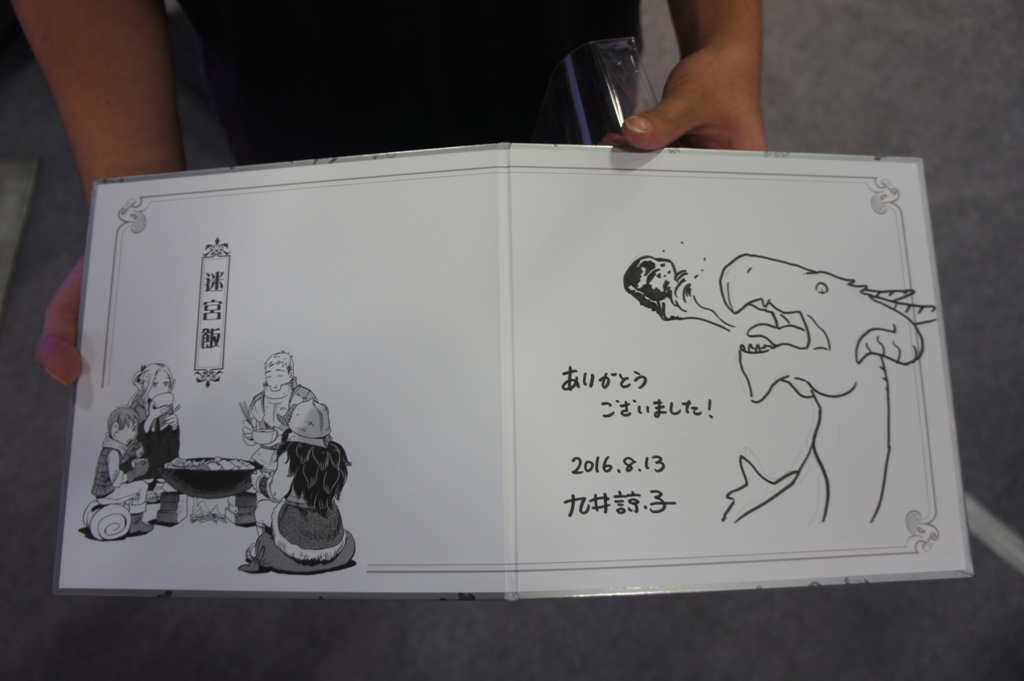 迷宮飯
ありがとう
ございました!
2016.8.13
九井諒子